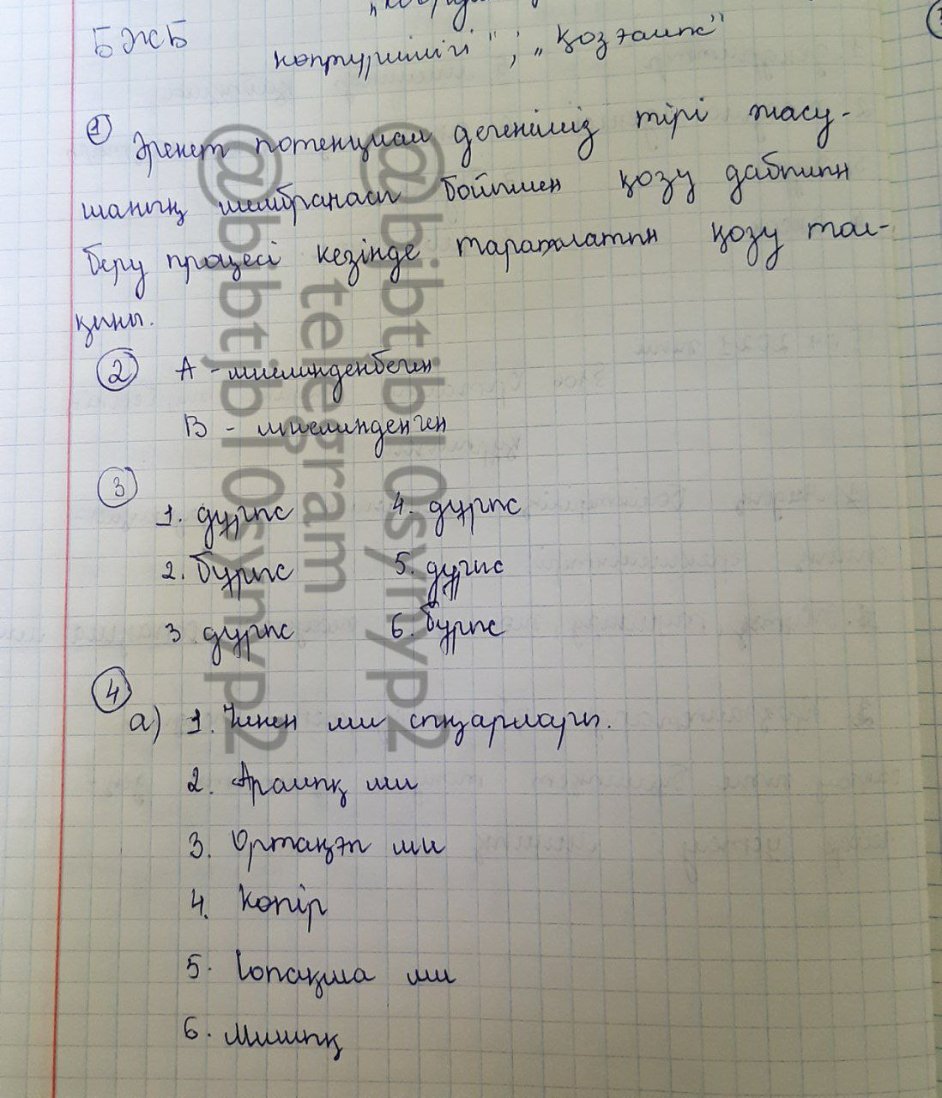 БЖБ
көптүрлілігі" ; „Қозғалыс"
① Әрекет потенциал дегеніміз тірі жасу-
шаның мембранасы бойымен қозу дабылын
беру процесі кезінде таралатын қозу тол-
қыны.
② А - миелинденбеген
В - миелинденген
③
1. дұрыс 4. дұрыс
2. бұрыс 5. дұрыс
3 дұрыс 6. бұрыс
④
а) 1. Үлкен ми сыңарлары.
2. Аралық ми
3. Ортаңғы ми
4. Көпір
5. Сопақша ми
6. Мишық
@bjbtjb10synyp2
telegram
@bjbtjb10synyp2